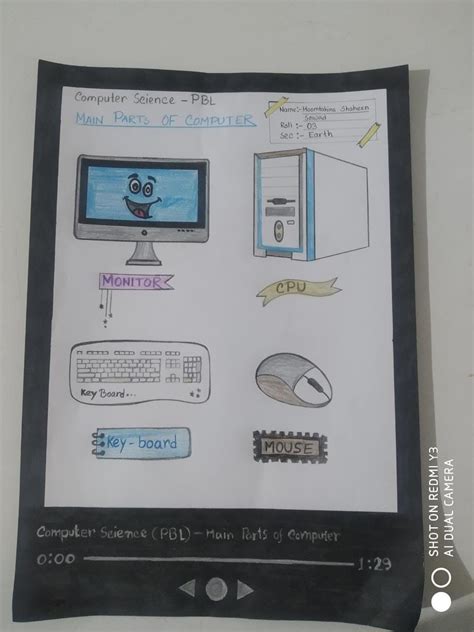 Computer Science - PBL
MAIN PARTS OF COMPUTER
Name:- Moomtahina Shaheen
Roll :- 03
Sec :- Earth
MONITOR
CPU
Key Board...
Key-board
MOUSE
Computer Science (PBL) - Main Parts of Computer
0:00
1:29
SHOT ON REDMI Y3
AI DUAL CAMERA